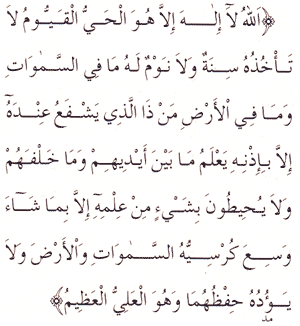 ﴿اَللهُ لآَ إِلٰـهَ إِلاَّ هُوَ الْحَيُّ الْقَيُّـومُ لاَ
تَـأْخُذُهُ سِنَةٌ وَلاَ نَوْمٌ لَهُ مَا فِي السَّـمٰوَاتِ
وَمَا فِي اْلأَرْضِ مَنْ ذَا الَّذِي يَشْـفَعُ عِنْدَهُٓ
إِلاَّ بِإِذْنِهِ يَعْلَمُ مَا بَيْنَ أَيْدِيهِمْ وَمَا خَلْفَهُمْ
وَلاَ يُحِيطُونَ بِشَيْءٍ مِنْ عِلْمِهِٓ إِلاَّ بِمَا شَآءَ
وَسِعَ كُرْسِيُّهُ السَّـمٰوَاتِ وَاْلأَرْضَ وَلاَ
يَـؤُدُهُ حِفْظُهُمَا وَهُوَ الْعَلِيُّ الْعَظِيمُ﴾